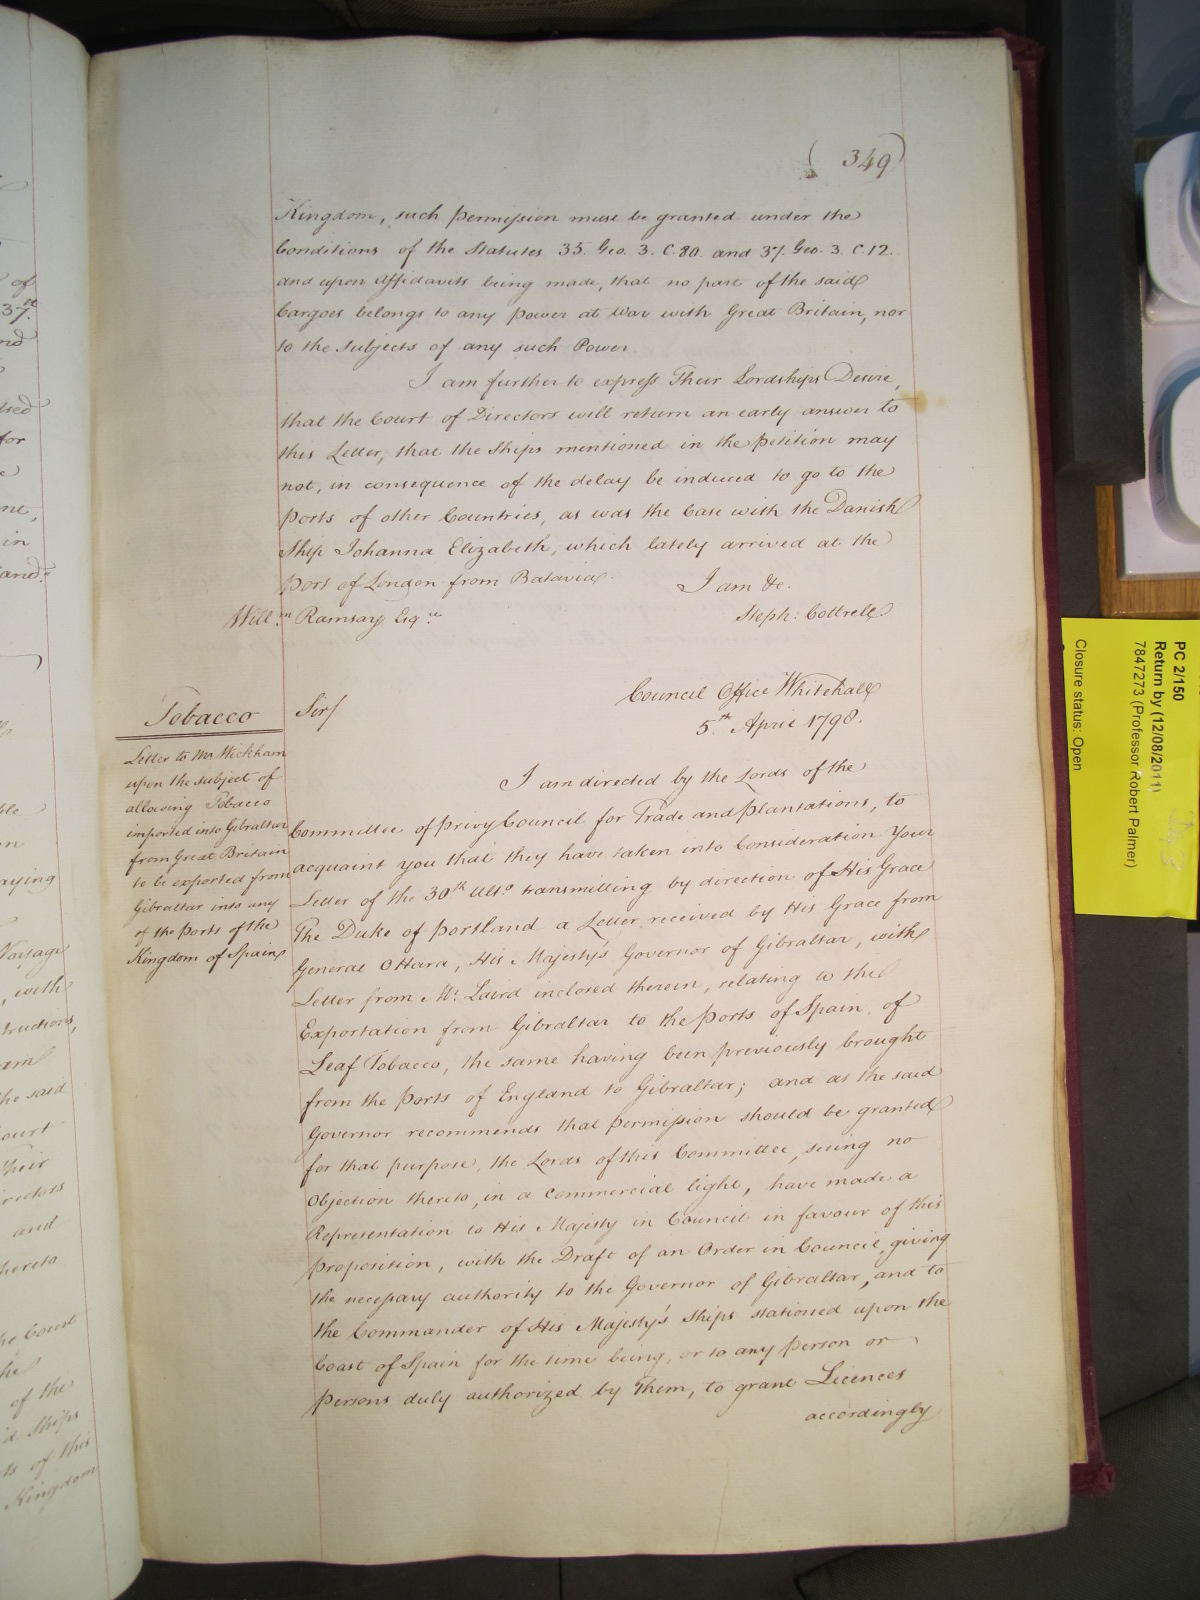 (349)
Kingdom, such permission must be granted under the
Conditions of the Statutes 35. Geo. 3. C. 80. and 37. Geo. 3. C. 12.
and upon Affidavits being made, that no part of the said
Cargoes belongs to any power at War with Great Britain, nor
to the Subjects of any such Power.
I am further to express Their Lordships Desire,
that the Court of Directors will return an early answer to
this Letter, that the Ships mentioned in the petition may
not, in consequence of the delay be induced to go to the
ports of other Countries, as was the Case with the Danish
Ship Johanna Elizabeth, which lately arrived at the
port of London from Batavia.
I am &c.
Will:m Ramsay Esq:re
Steph: Cottrell
Council Office Whitehall
5th April 1798.
Tobacco
Letter to Mr Wickham
upon the subject of
allowing Tobacco
imported into Gibraltar
from Great Britain
to be exported from
Gibraltar into any
of the Ports of the
Kingdom of Spain
Sir/
I am directed by the Lords of the
Committee of privy Council for Trade and plantations, to
acquaint you that they have taken into Consideration Your
Letter of the 30th Ulto transmitting by direction of His Grace
The Duke of portland a Letter received by His Grace from
General OHara, His Majesty's Governor of Gibraltar, with
Letter from Mr. Laird inclosed therein, relating to the
Exportation from Gibraltar to the ports of Spain, of
Leaf Tobacco, the same having been previously brought
from the ports of England to Gibraltar; and as the said
Governor recommends that permission should be granted
for that purpose, the Lords of this Committee, seeing no
Objection thereto, in a Commercial light, have made a
Representation to His Majesty in Council in favour of this
proposition, with the Draft of an Order in Council, giving
the necessary authority to the Governor of Gibraltar, and to
the Commander of His Majesty's Ships stationed upon the
Coast of Spain for the time being, or to any person or
persons duly authorized by Them, to grant Licences
accordingly
of
37.st
nd
used
for
in
and
saying
Voyage
, with
ructions,
am
the said
ourt
Their
irectors
and
hereto
he Court
the
of the
d Ships
ts of this
Kingdom
PC 2/150
Return by (12/08/2011)
7847273 (Professor Robert Palmer)
Closure status: Open